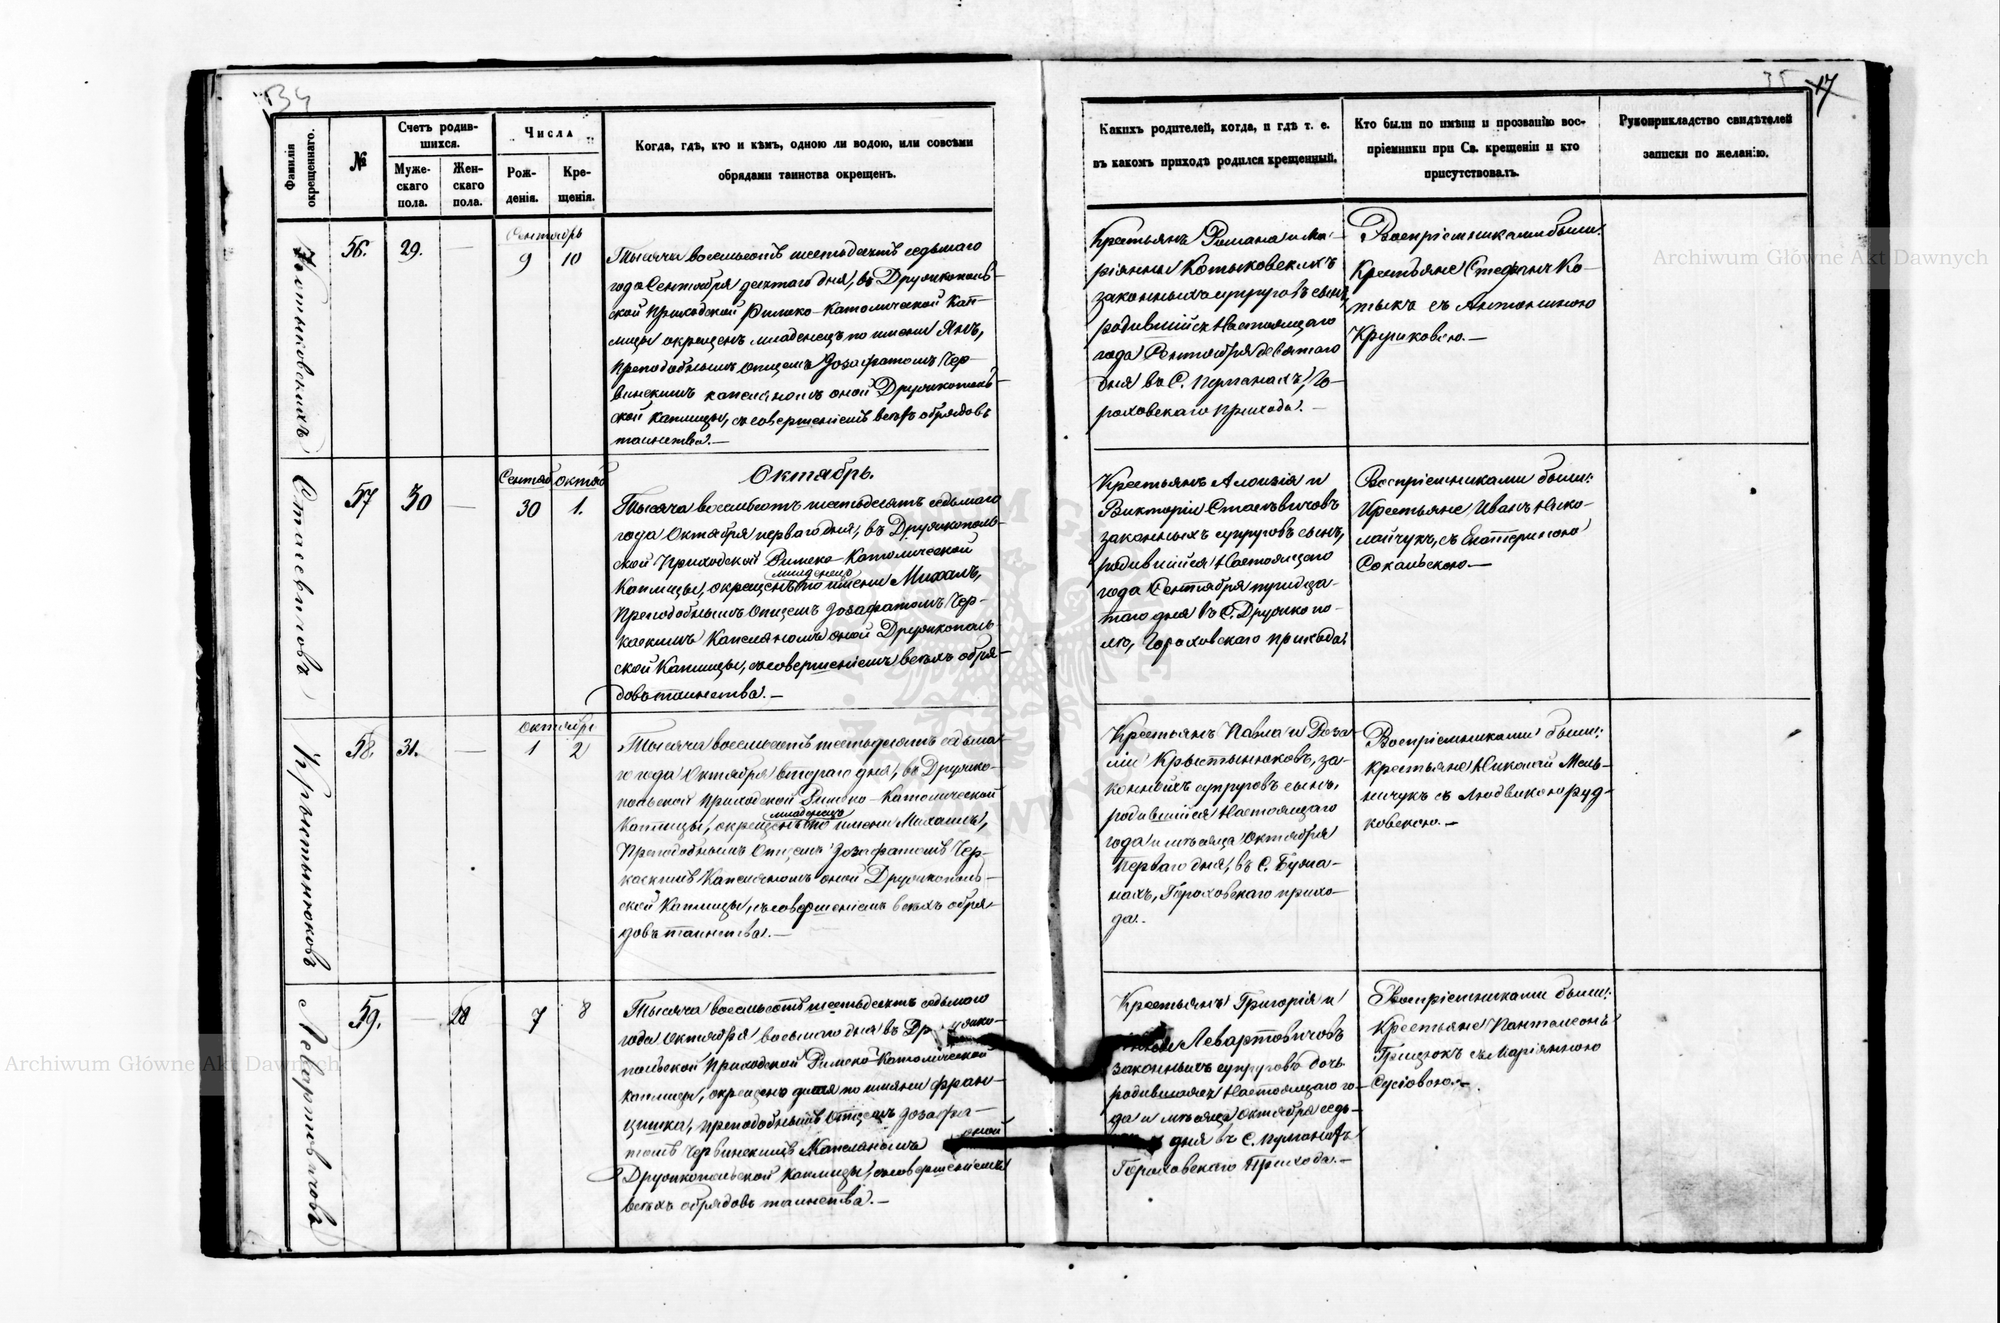 34
35 17
Фамилія окрещеннаго.
№
Счетъ родив-
шихся.
Муже-
скаго
пола.
Жен-
скаго
пола.
Числа
Рож-
денія.
Кре-
щенія.
Когда, гдѣ, кто и кѣмъ, одною ли водою, или совсѣми
обрядами таинства окрещенъ.
Какихъ родителей, когда, и гдѣ т. е.
въ какомъ приходѣ родился крещенный.
Кто были по имѣни и прозванію вос-
пріемники при Св. крещеніи и кто
присутствовалъ.
Рукоприкладство свидѣтелей
записки по желанію.
Котыковскихъ
56. 29. —
Сентябрь
9 10
Тысяча восемьсотъ шестьдесятъ седьмаго
года Сентября десятаго дня, въ Дружкополь-
ской Приходской Римско-Католической Кап-
лицы окрещенъ младенецъ по имени Янъ,
Преподобнымъ Отцемъ Іозафатомъ Чер-
винскимъ капеляномъ оной Дружкополь-
ской Каплицы, съ совершеніемъ всѣхъ обрядовъ
таинства. —
Крестьянъ Романа и Ма-
ріянны Котыковскихъ
законныхъ супруговъ сынъ,
родившійся Настоящаго
года Сентября девятаго
дня въ С. Пуманахъ, Го-
роховскаго Прихода. —
Воспріемниками были:
Крестьяне Стефанъ Ко-
тыкъ съ Антониною
Круковскою. —
Стасевичовъ
57 30 —
Сентяб Октяб
30 1.
Октябрь.
Тысяча восемьсотъ шестьдесятъ седьмаго
года Октября перваго дня, въ Дружкополь-
ской Приходской Римско-Католической
младенецъ
Каплицы, окрещенъ по имени Михалъ,
Преподобнымъ Отцемъ Іозафатомъ Чер-
Капеляномъ оной Дружкополь
ской Каплицы, съ совершеніемъ всѣхъ обря-
довъ таинства. —
Крестьянъ Алоизія и
Викторіи Стасѣвичовъ
законныхъ супруговъ сынъ,
родившійся Настоящаго
года Сентября тридца-
таго дня въ С. Дружкопо-
лю, Гороховскаго прихода.
Воспріемниками были:
Крестьяне, Иванъ Нико-
лайчукъ, съ Екатериною
Сокальскою. —
Крыштынюковъ
58. 31. —
Октябрь
1 2
Тысяча восемьсотъ шестьдесятъ седьма-
го года Октября втораго дня, въ Дружко-
польской Приходской Римско-Католической
младенецъ
Каплицы, окрещенъ по имени Михаилъ,
Преподобнымъ Отцемъ Іозафатомъ Чер-
Капеляномъ оной Дружкополь-
ской Каплицы, съ совершеніемъ всѣхъ обря-
довъ таинства. —
Крестьянъ Павла и Роза
ліи Крыштынюковъ, за-
конныхъ супруговъ сынъ,
родившійся Настоящаго
года и мѣсяца Октября
Перваго дня, въ С.
Гороховскаго прихо-
да.
Воспріемниками были:
Крестьяне Николай Мель-
ничукъ съ Людвикою Руд-
ковскою. —
Левартовичовъ
59. — 28
7 8
Тысяча восемьсотъ шестьдесятъ седьмаго
года Октября восьмаго дня въ Дружко-
польской Приходской Римско-Католической
каплицы, окрещено дитя по имяни Фран-
цишка, преподобнымъ Отцемъ Іозафа-
томъ Червинскимъ Капеляномъ оной
Дружкопольской Каплицы, съ совершеніемъ
всѣхъ обрядовъ таинства. —
Крестьянъ Григорія и
Левартовичовъ
законныхъ супруговъ дочь
родившаяся Настоящаго го-
да и мѣсяца Октября седь-
дня въ С. Пуманахъ
Гороховскаго Прихода. —
Воспріемниками были:
Крестьяне Пантелеонъ
Грицюкъ съ Маріянною
Сусіовою. —
Archiwum Główne Akt Dawnych
Archiwum Główne Akt Dawnych